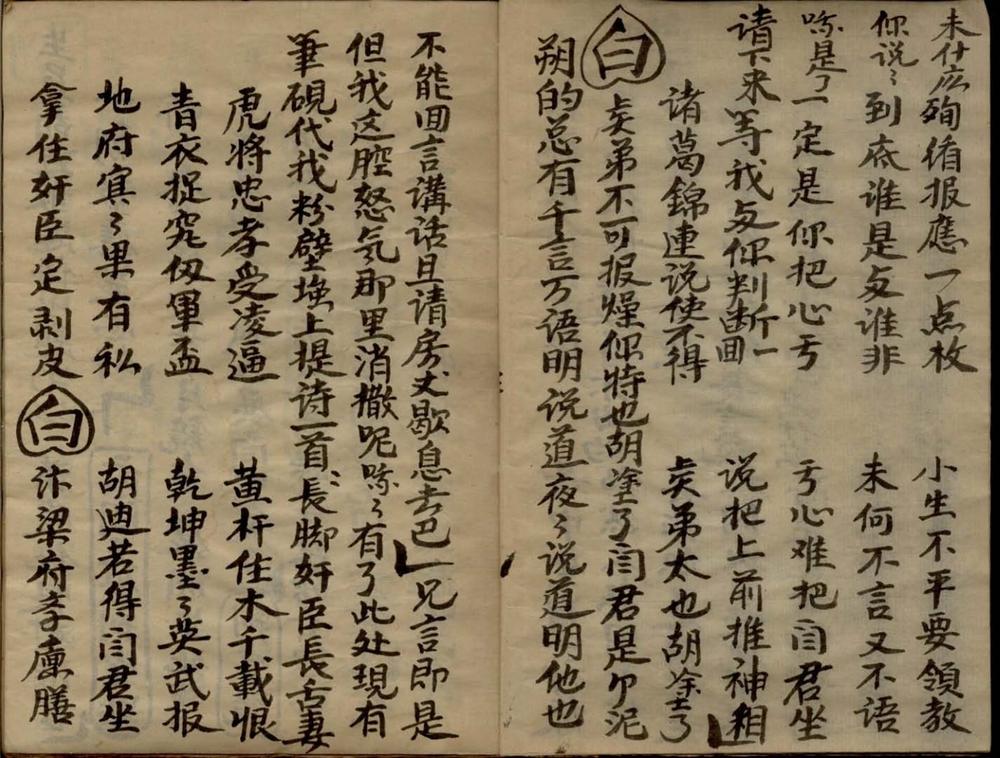 未什庅殉循报應一点枚 小生不平要領教
你说〻到底谁是与谁非 未何不言又不语
哧是了一定是你把心亏 亏心难把阎君坐
请下来等我与你判断一回 说把上前推神相
诸葛錦連说使不得 矣弟太也胡塗了
白 矣弟不可报燥你特也胡塗了闫君是尕泥
朔的总有千言万语明说道夜〻说道明他也
不能回言講话且请房丈歇息去巴 兄言即是
但我这腔怒氣那里消撒呢哧〻有了此处現有
筆硯代我粉壁墙上提诗一首 長脚奸臣長舌妻
虎将忠孝受凌逼 黄杆住木千載恨
青衣捉究匁軍盃 乾坤墨〻英武报
地府宾〻果有私 胡迪若得闫君坐
拿住奸臣定剥皮 白 汴梁府孝廉膳